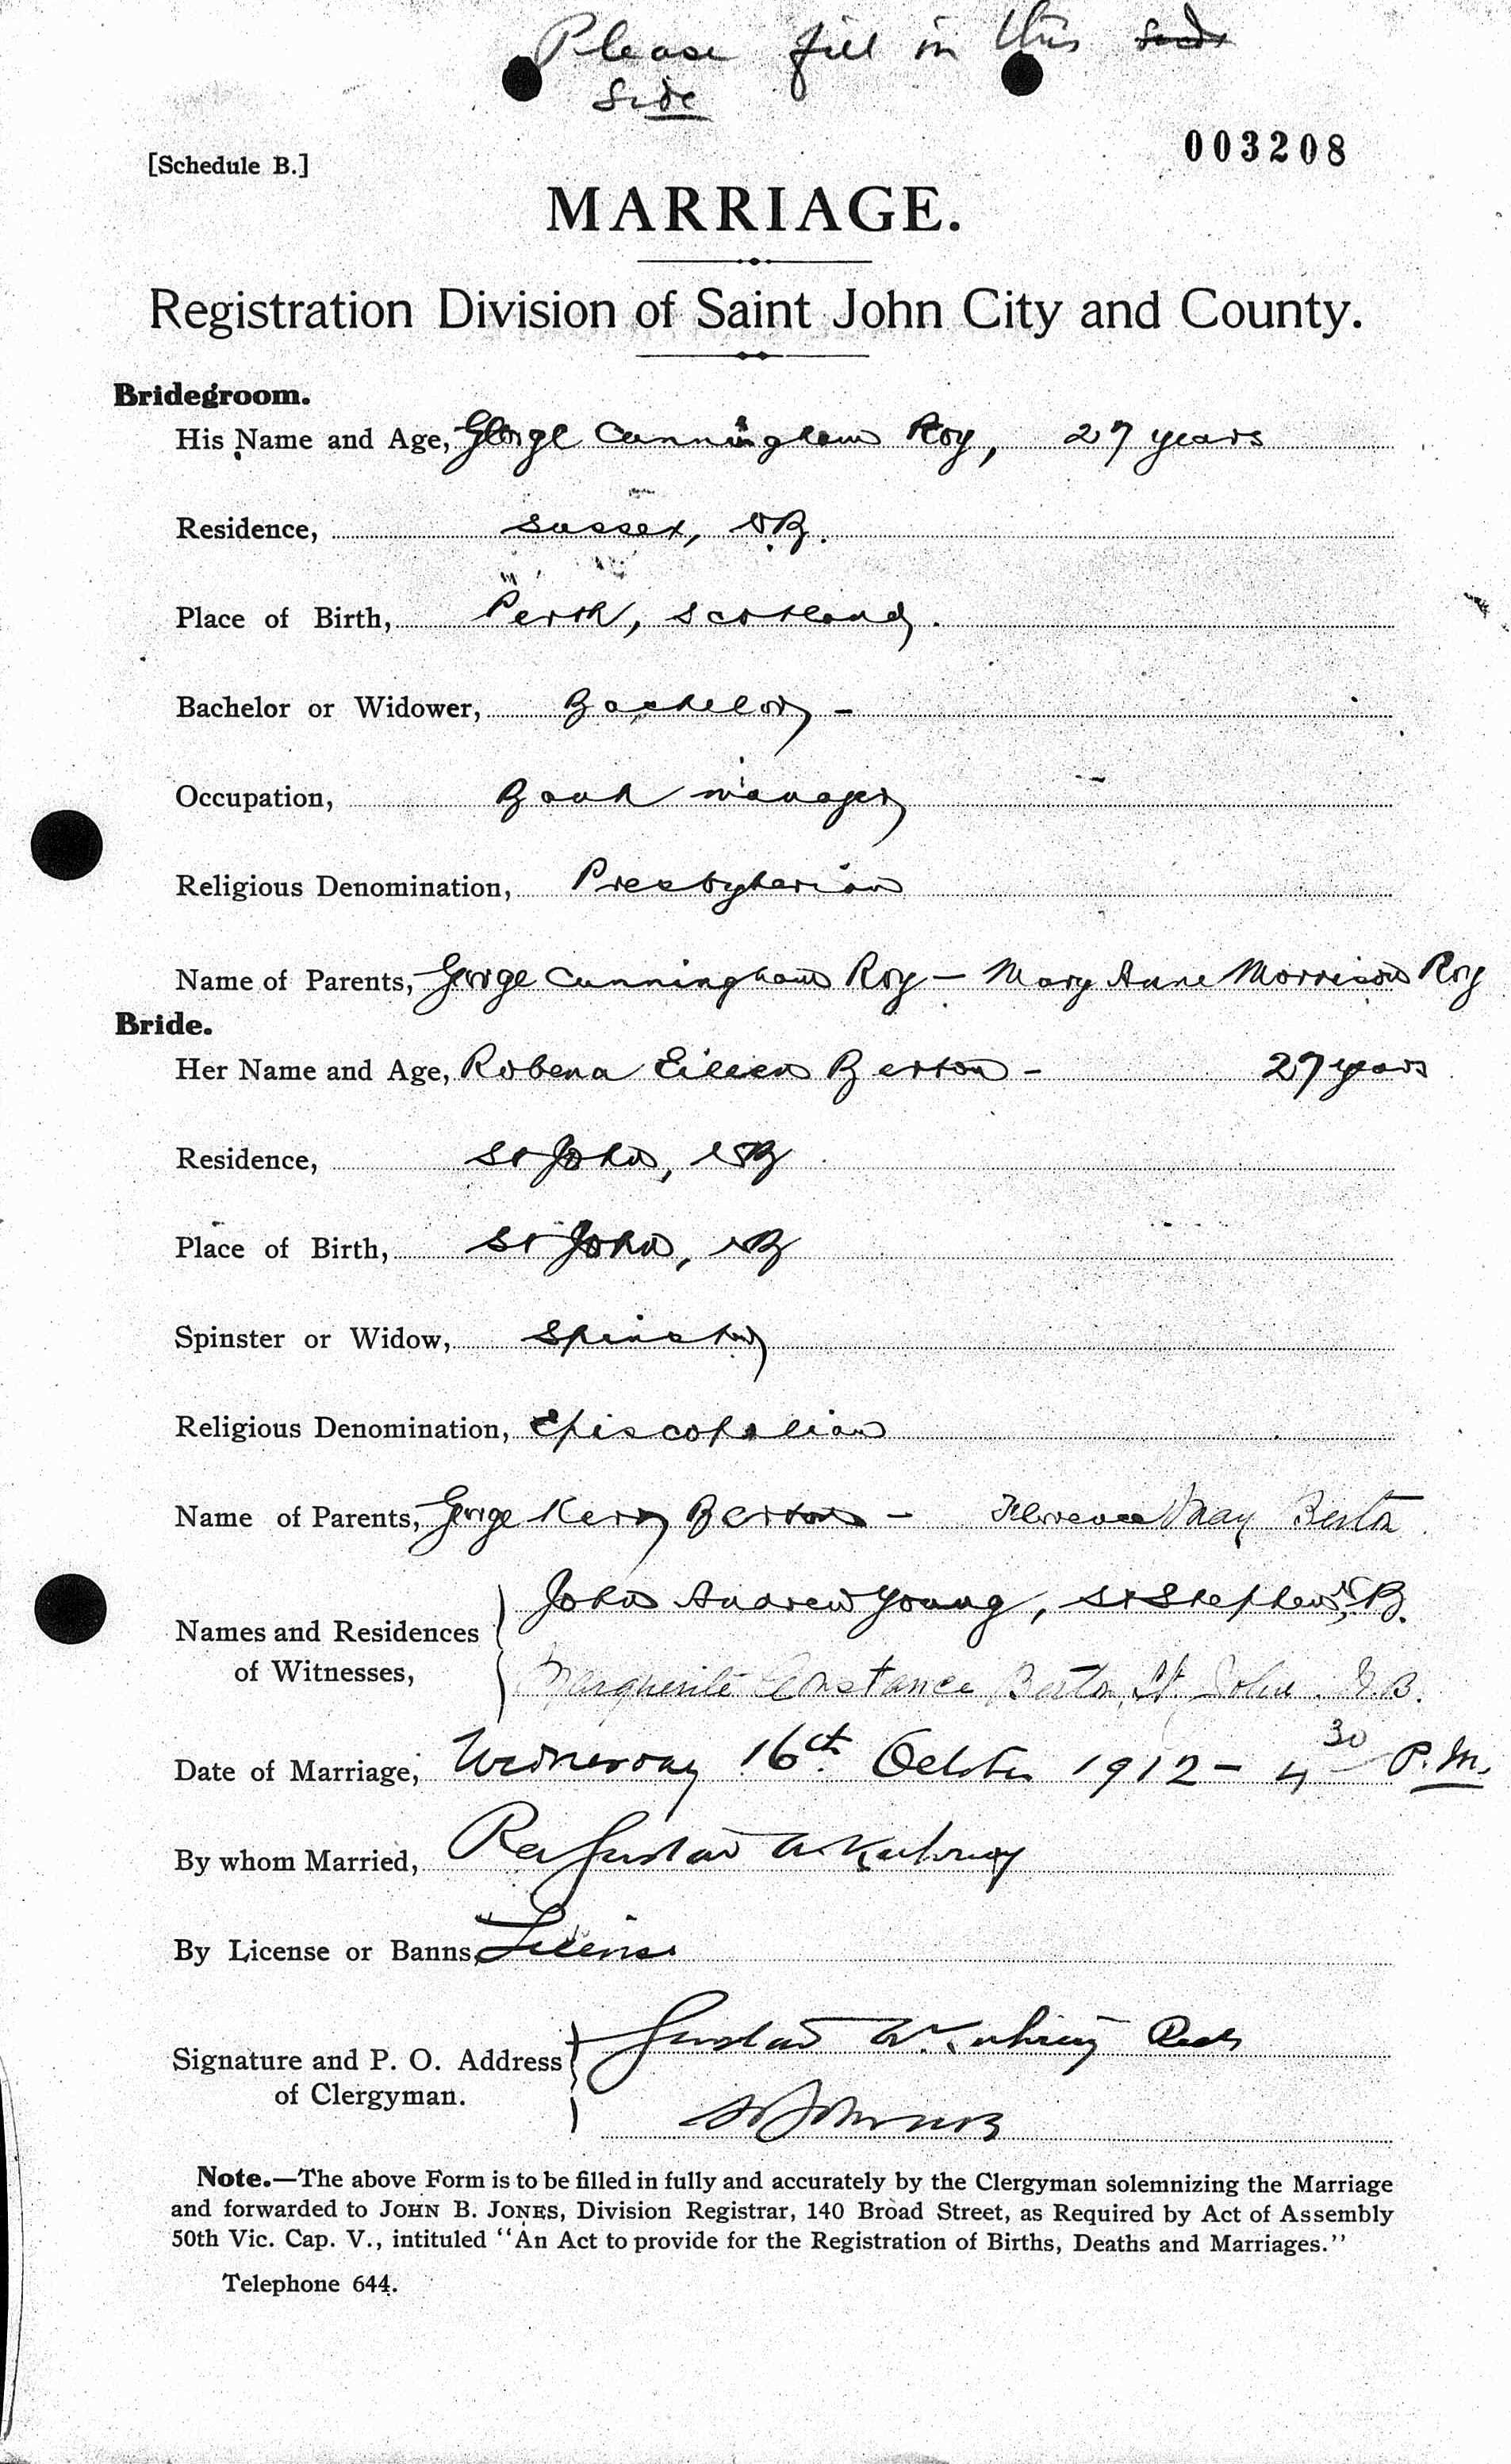 Please fill in this
side
003208
[Schedule B.]
MARRIAGE.
Registration Division of Saint John City and County.
Bridegroom.
His Name and Age, George Cunningham Roy, 27 years
Residence, Sussex, N.B.
Place of Birth, Perth, Scotland.
Bachelor or Widower, Bachelor -
Occupation, Bank manager
Religious Denomination, Presbyterian
Name of Parents, George Cunningham Roy - Mary Anne Morrison Roy
Bride.
Her Name and Age, Robena Eileen Berton - 27 years
Residence, St John, NB
Place of Birth, St John, NB
Spinster or Widow, Spinster
Religious Denomination, Episcopalian
Name of Parents, George Kerr Berton - Florence May Berton
John Andrew Young, St Stephen, N.B.
Names and Residences
of Witnesses,
Marguerite Constance Berton, St. John. N.B.
Date of Marriage, Wednesday 16th October 1912 - 4 30 P.M.
By whom Married, Rev Gustav A Kuhring
By License or Banns, License
Gustav A Kuhring
Signature and P. O. Address
of Clergyman.
St John NB
Note.—The above Form is to be filled in fully and accurately by the Clergyman solemnizing the Marriage
and forwarded to JOHN B. JONES, Division Registrar, 140 Broad Street, as Required by Act of Assembly
50th Vic. Cap. V., intituled "An Act to provide for the Registration of Births, Deaths and Marriages."
Telephone 644.